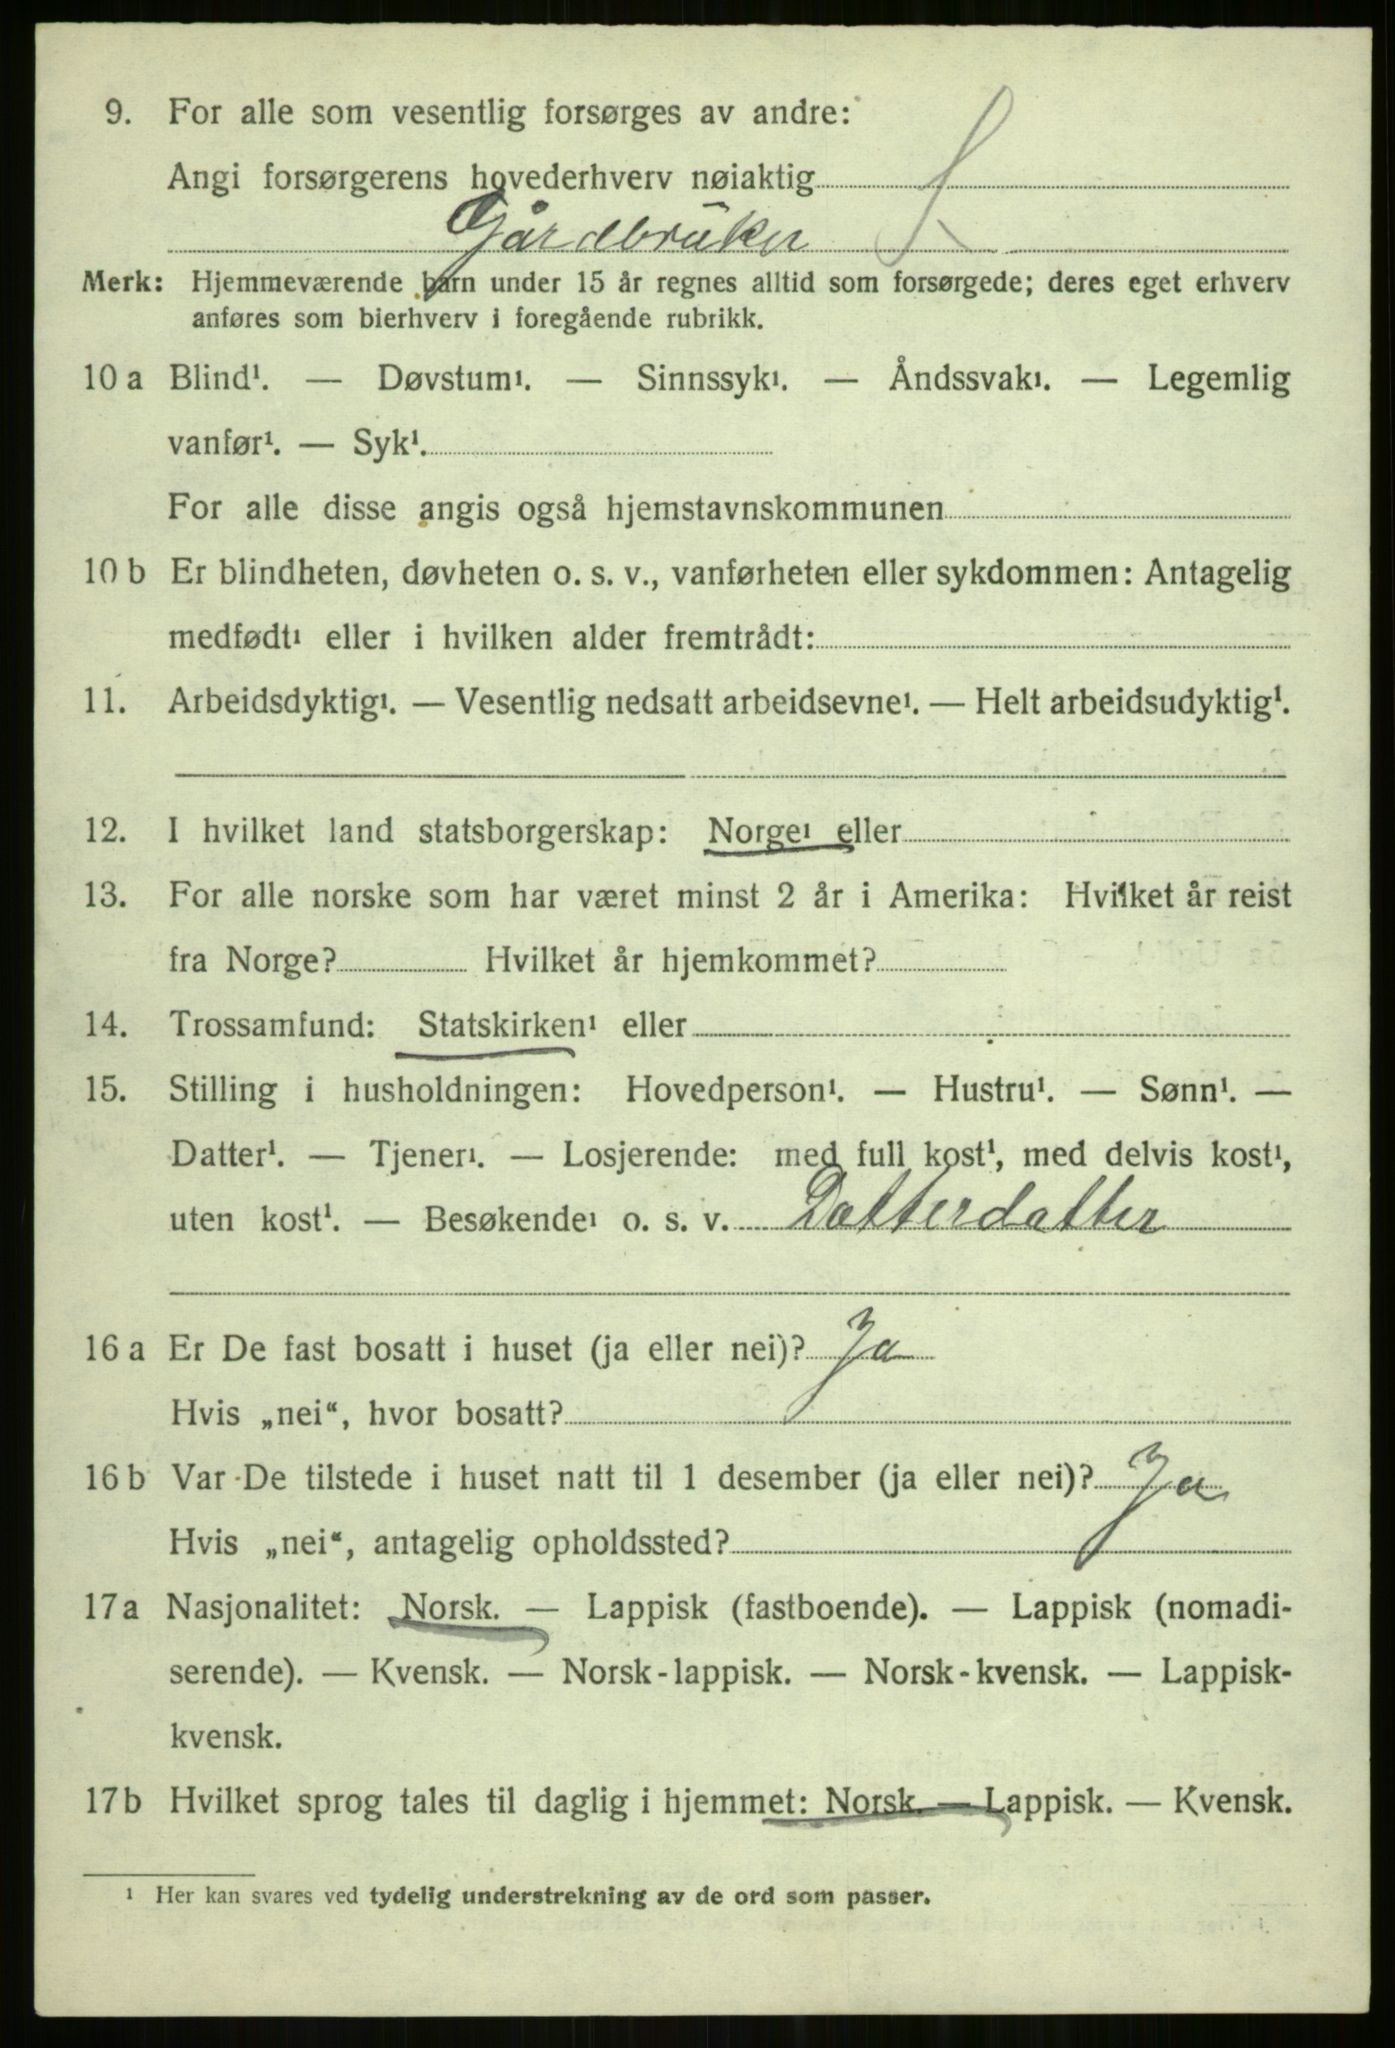 9. For alle som vesentlig forsørges av andre:
Angi forsørgerens hovederhverv nøiaktig
Gårdbruker
Merk: Hjemmeværende barn under 15 år regnes alltid som forsørgede; deres eget erhverv
anføres som bierhverv i foregående rubrikk.
10 a Blind¹. — Døvstum¹. — Sinnssyk¹. — Åndssvak¹. — Legemlig
vanfør¹. — Syk¹.
For alle disse angis også hjemstavnskommunen
10 b Er blindheten, døvheten o. s. v., vanførheten eller sykdommen: Antagelig
medfødt¹ eller i hvilken alder fremtrådt:
11. Arbeidsdyktig¹. — Vesentlig nedsatt arbeidsevne¹. — Helt arbeidsudyktig¹.
12. I hvilket land statsborgerskap: Norge¹ eller
13. For alle norske som har været minst 2 år i Amerika: Hvilket år reist
fra Norge? Hvilket år hjemkommet?
14. Trossamfund: Statskirken¹ eller
15. Stilling i husholdningen: Hovedperson¹. — Hustru¹. — Sønn¹. —
Datter¹. — Tjener¹. — Losjerende: med full kost¹, med delvis kost¹,
uten kost¹. — Besøkende¹ o. s. v. Datterdatter
16 a Er De fast bosatt i huset (ja eller nei)? Ja
Hvis „nei“, hvor bosatt?
16 b Var De tilstede i huset natt til 1 desember (ja eller nei)? Ja
Hvis „nei“, antagelig opholdssted?
17 a Nasjonalitet: Norsk. — Lappisk (fastboende). — Lappisk (nomadi-
serende). — Kvensk. — Norsk-lappisk. — Norsk-kvensk. — Lappisk-
kvensk.
17 b Hvilket sprog tales til daglig i hjemmet: Norsk. — Lappisk. — Kvensk.
¹ Her kan svares ved tydelig understrekning av de ord som passer.